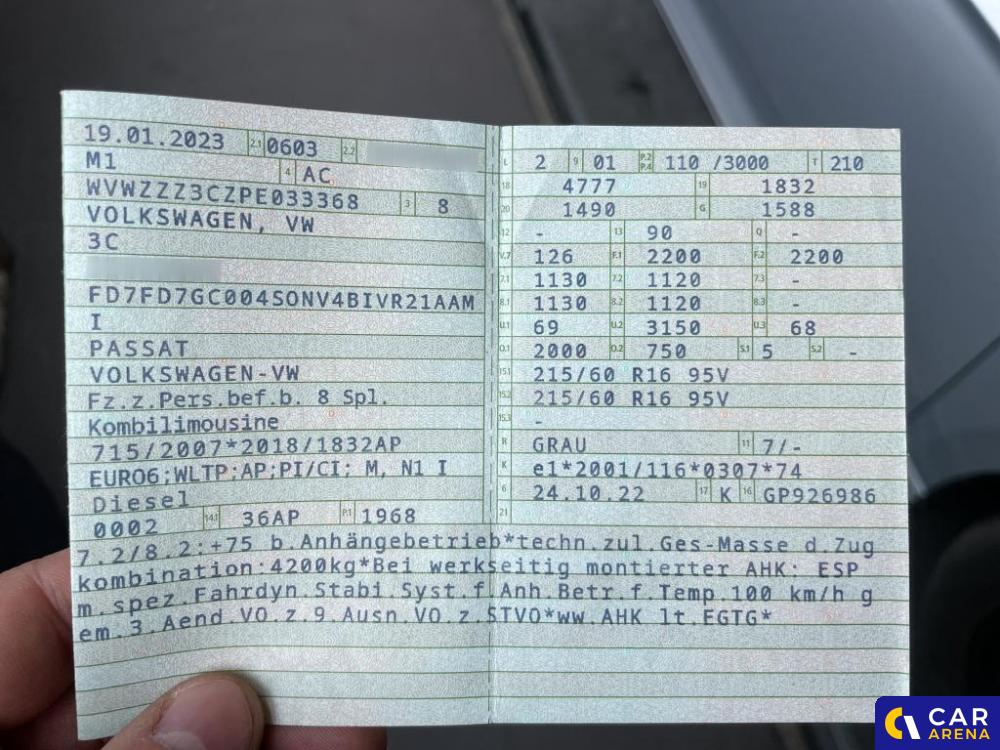 19.01.2023 2.1 0603 2.2
M1 4 AC
WVWZZZ3CZPE033368 3 8
VOLKSWAGEN, VW
3C
FD7FD7GC004SONV4BIVR21AAM
I
PASSAT
VOLKSWAGEN-VW
Fz.z.Pers.bef.b. 8 Spl.
Kombilimousine
715/2007*2018/1832AP
EURO6;WLTP;AP;PI/CI; M, N1 I
Diesel
0002 14.1 36AP P.1 1968
L 2 9 01 P.2 P.4 110 /3000 T 210
18 4777 19 1832
20 1490 G 1588
12 - 13 90 Q -
V.7 126 F.1 2200 F.2 2200
7.1 1130 7.2 1120 7.3 -
8.1 1130 8.2 1120 8.3 -
U.1 69 U.2 3150 U.3 68
O.1 2000 O.2 750 S.1 5 S.2 -
15.1 215/60 R16 95V
15.2 215/60 R16 95V
15.3 -
R GRAU 11 7/-
K e1*2001/116*0307*74
6 24.10.22 17 K 16 GP926986
21
7.2/8.2:+75 b.Anhängebetrieb*techn.zul.Ges-Masse d.Zug
kombination:4200kg*Bei werkseitig montierter AHK: ESP
m.spez.Fahrdyn.Stabi.Syst.f.Anh.Betr.f.Temp.100 km/h g
em.3.Aend.VO.z.9.Ausn.VO.z.STVO*ww.AHK lt.EGTG*
CAR
ARENA